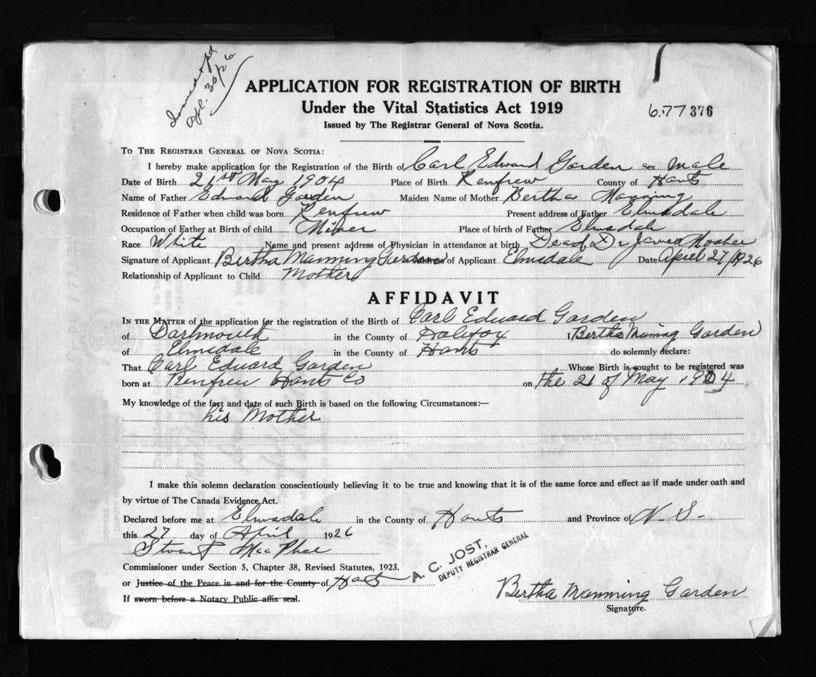 Apl. 30/26
APPLICATION FOR REGISTRATION OF BIRTH
Under the Vital Statistics Act 1919
Issued by The Registrar General of Nova Scotia.
677376
TO THE REGISTRAR GENERAL OF NOVA SCOTIA:
I hereby make application for the Registration of the Birth of Carl Edward Garden Sex Male
Date of Birth 21st May 1904 Place of Birth Renfrew County of Hants
Name of Father Edward Garden Maiden Name of Mother Bertha Manning
Residence of Father when child was born Renfrew Present address of Father Elmsdale
Occupation of Father at Birth of child Miner Place of birth of Father Elmsdale
Race White Name and present address of Physician in attendance at birth Dead Dr Mosher
Signature of Applicant Bertha Manning Garden of Applicant Elmsdale Date April 27/1926
Relationship of Applicant to Child Mother
AFFIDAVIT
IN THE MATTER of the application for the registration of the Birth of Carl Edward Garden
of Dartmouth in the County of Halifax I Bertha Manning Garden
of Elmsdale in the County of Hants do solemnly declare:
That Carl Edward Garden Whose Birth is sought to be registered was
born at Renfrew Hants Co on the 21 of May 1904
My knowledge of the fact and date of such Birth is based on the following Circumstances:—
his Mother
I make this solemn declaration conscientiously believing it to be true and knowing that it is of the same force and effect as if made under oath and
by virtue of The Canada Evidence Act.
Declared before me at Elmsdale in the County of Hants and Province of N. S.
this 27 day of April 1926
Stuart MacPhee
Commissioner under Section 5, Chapter 38, Revised Statutes, 1923.
or Justice of the Peace in and for the County of Hants
A. C. JOST,
DEPUTY REGISTRAR GENERAL
If sworn before a Notary Public affix seal.
Bertha Manning Garden
Signature.